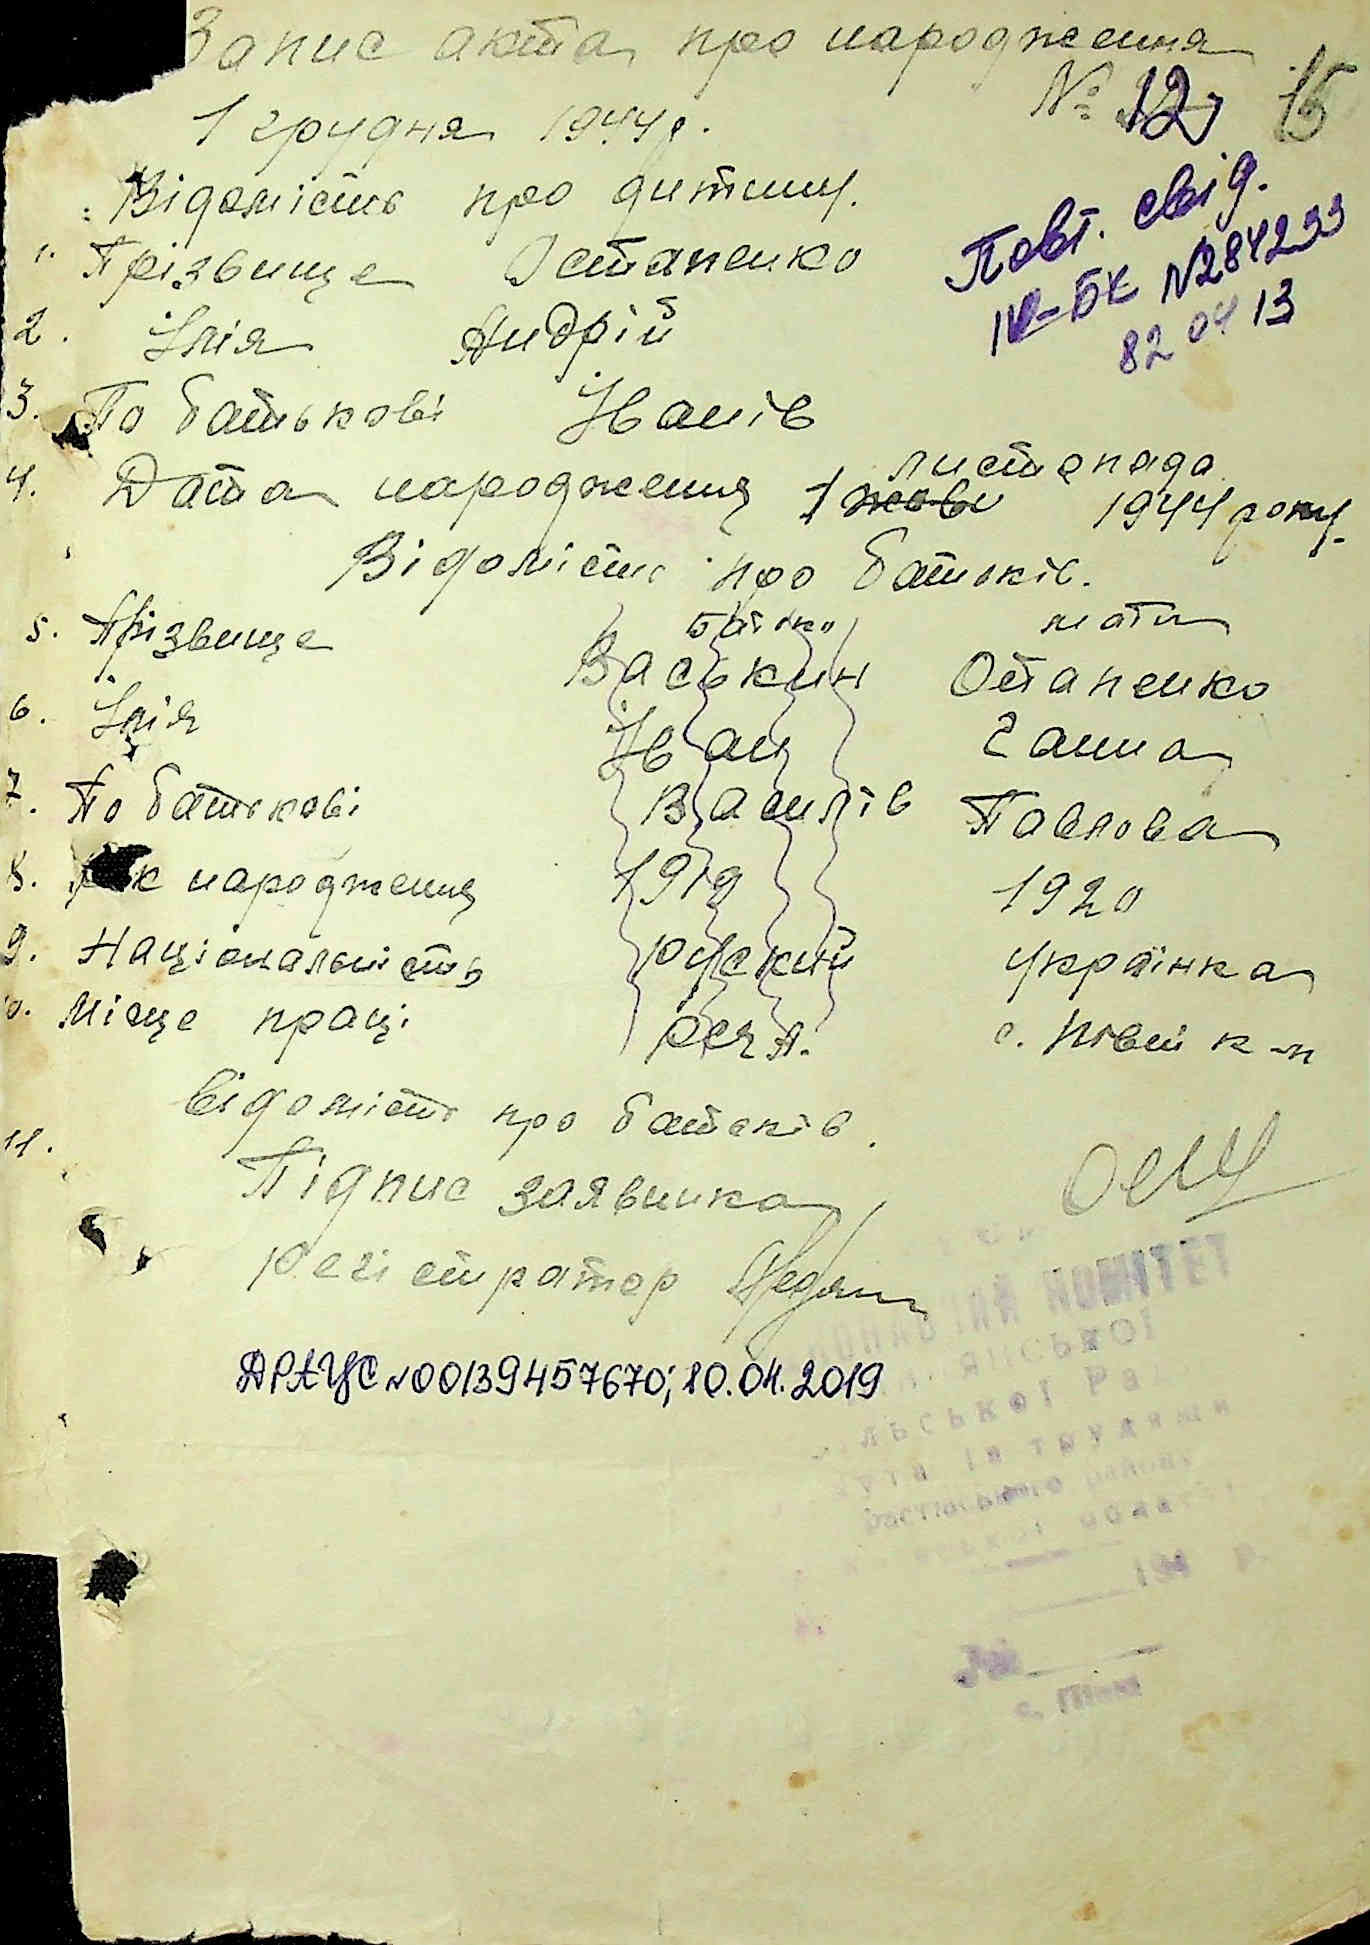 Запис акта про народження
№ 12 15
1 грудня 1944 р.
Відомість про дитину.
Повт. свід.
IV-БК №284233
82 04 13
1. Прізвище Остапенко
2. Імія Андрій
3. По батькові Іванів
листопада
4. Дата народження 1 жовт 1944 року.
Відомість про батьків.
батько мати
5. Прізвище Васькин Остапенко
6. Імія Іван Ганна
7. По батькові Василів Павлова
8. Рік народження 1919 1920
9. Національність руский українка
10. Місце праці РСЧА. с. Півні к-п
Відомість про батьків.
11.
Підпис заявника
Регістратор
КОМІТЕТ
ЛЬСЬКОЇ РА
ДРАЦС №00139457670; 10.04.2019
194 р.
№